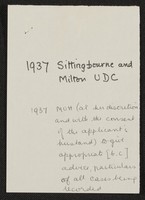 1937 Sittingbourne and
Milton UDC
1937 MOH (at his discretion
and with the consent
of the applicant's
husband) to give
appropriate [b.c.]
advice, particulars
of all cases being
recorded